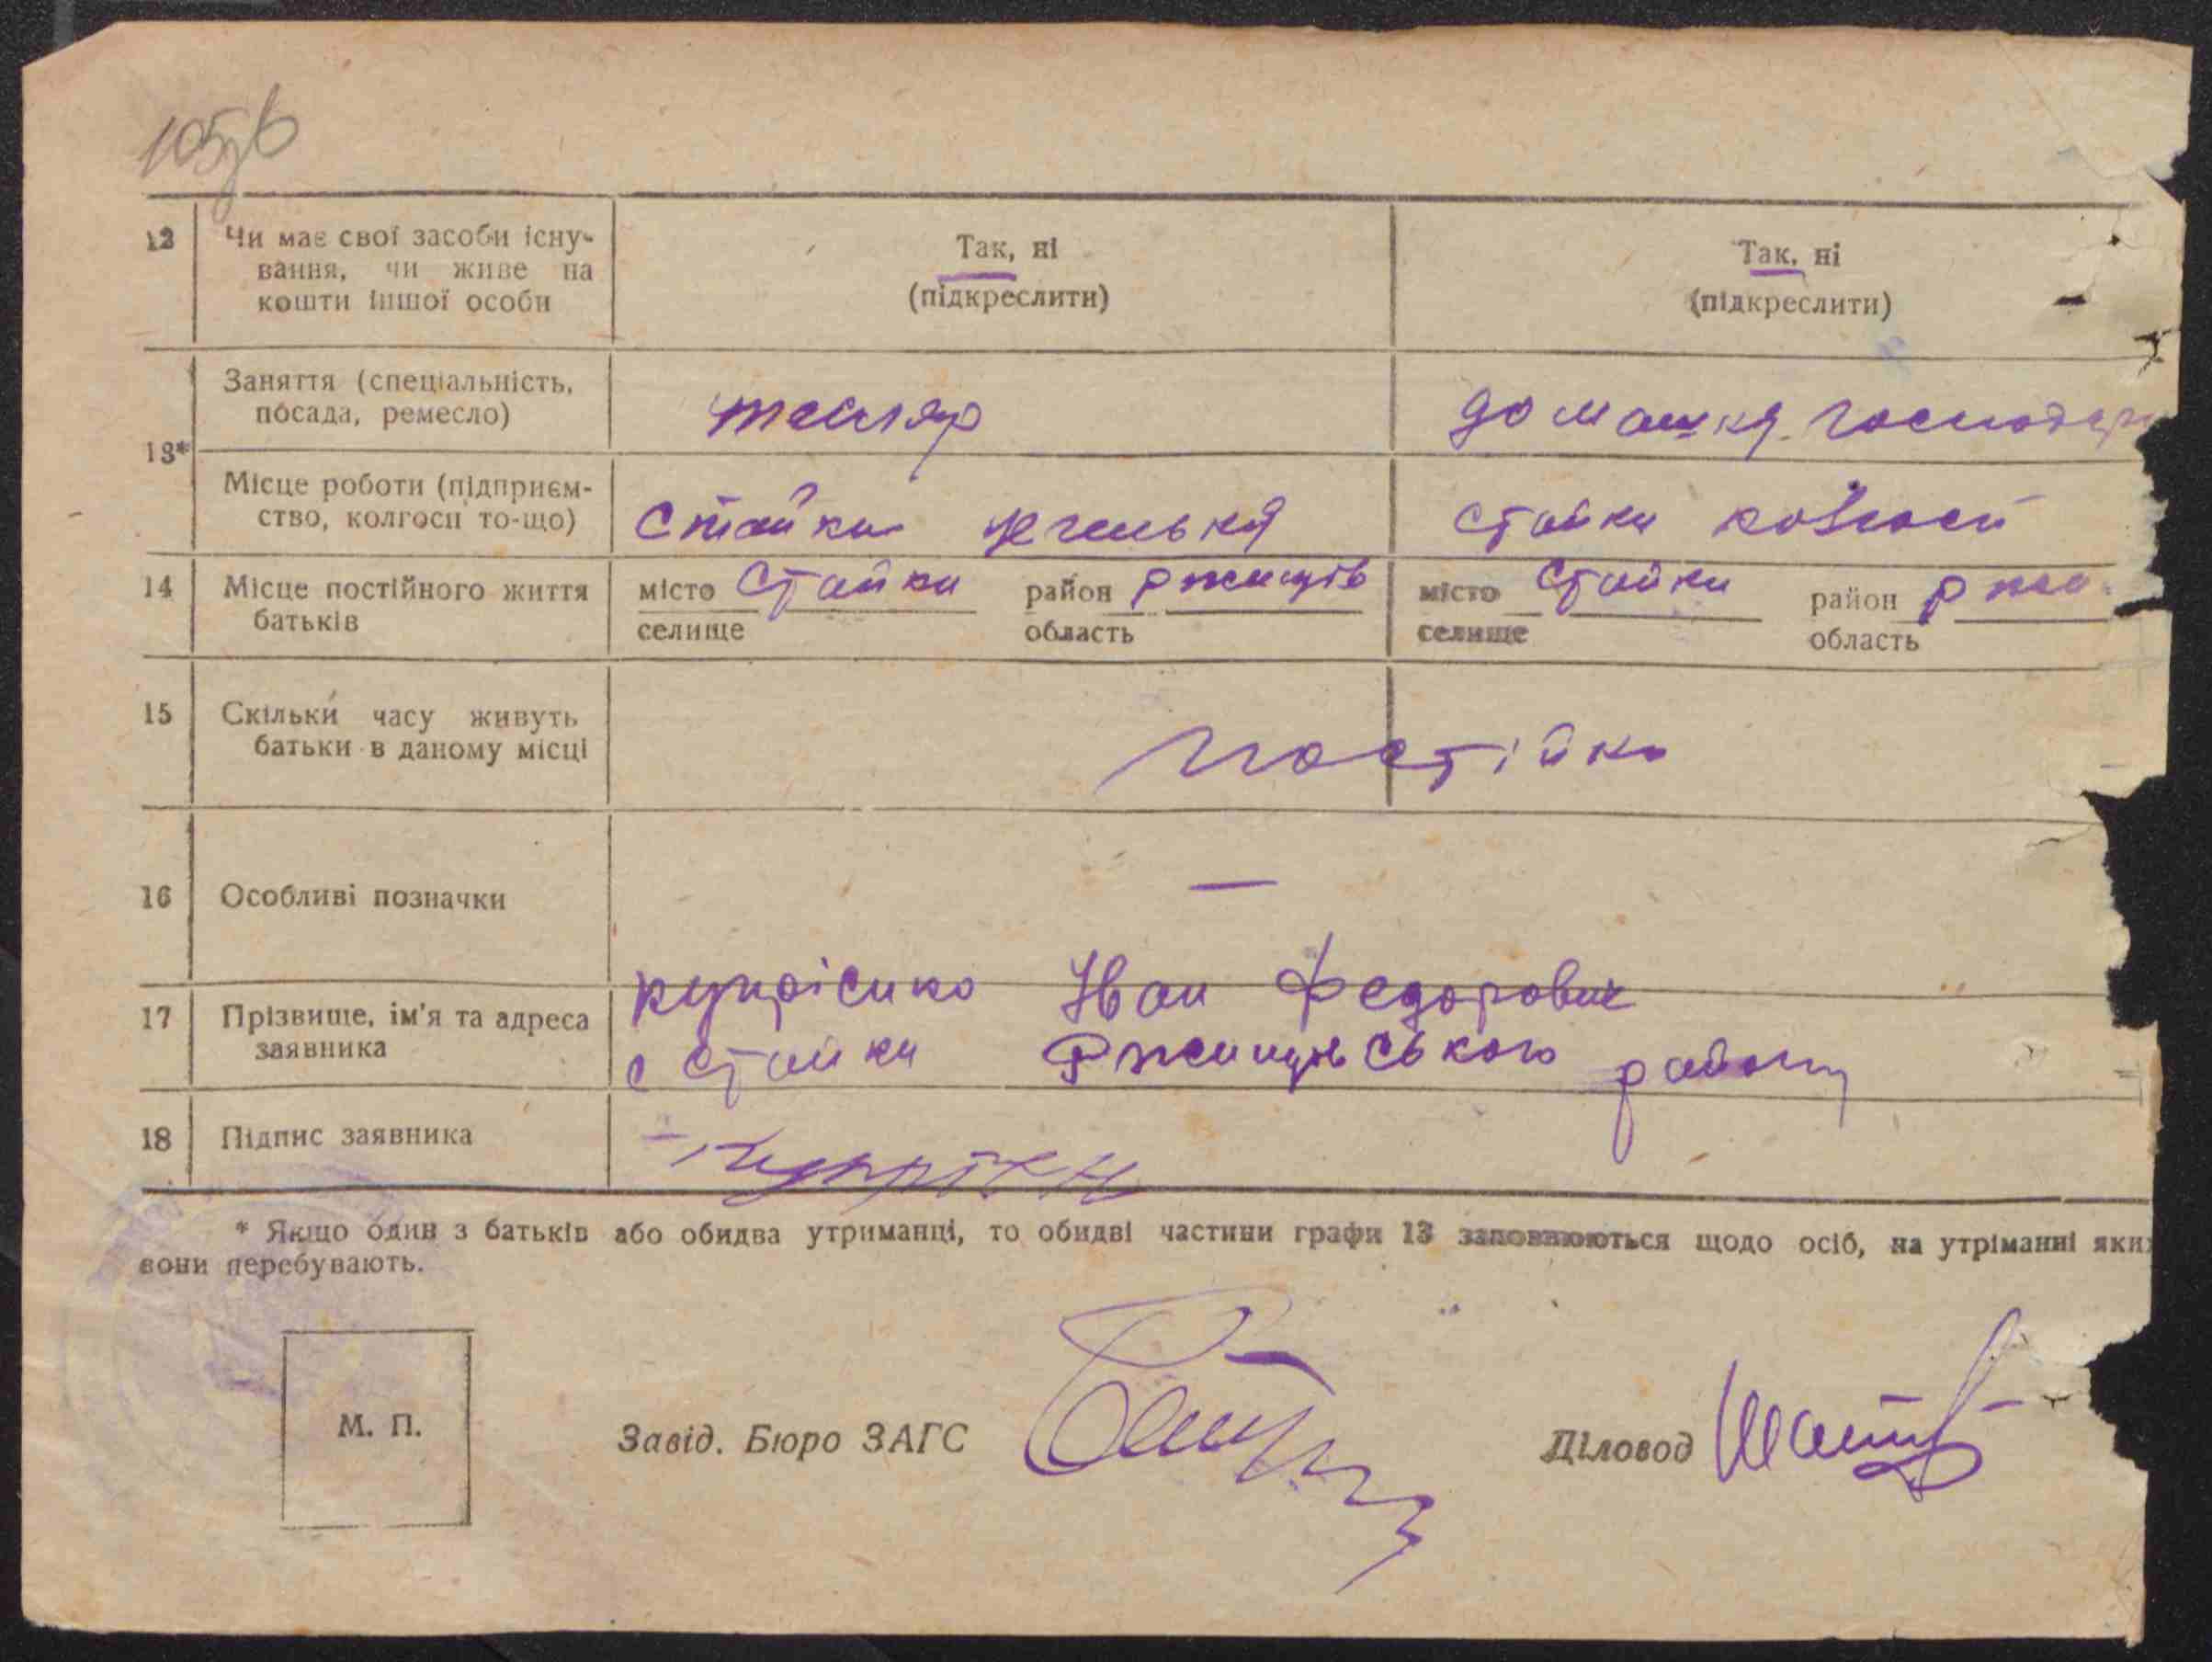 12 Чи має свої засоби існу-
вання, чи живе на
кошти іншої особи
Так, ні
(підкреслити)
Так, ні
(підкреслити)
13* Заняття (спеціальність,
посада, ремесло)
тесляр
домашня господар
Місце роботи (підприєм-
ство, колгосп то-що)
Стайки
Стайки колгосп
14 Місце постійного життя
батьків
місто Стайки район Ржищів
селище область
місто Стайки район Ржи
селище область
15 Скільки часу живуть
батьки в даному місці
постійно
16 Особливі позначки
—
17 Прізвище, ім'я та адреса
заявника
Купрієнко Іван Федорович
с Стайки Ржищівського району
18 Підпис заявника
* Якщо один з батьків або обидва утриманці, то обидві частини графи 13 заповнюються щодо осіб, на утріманні яки
вони перебувають.
М. П.
Завід. Бюро ЗАГС
Діловод